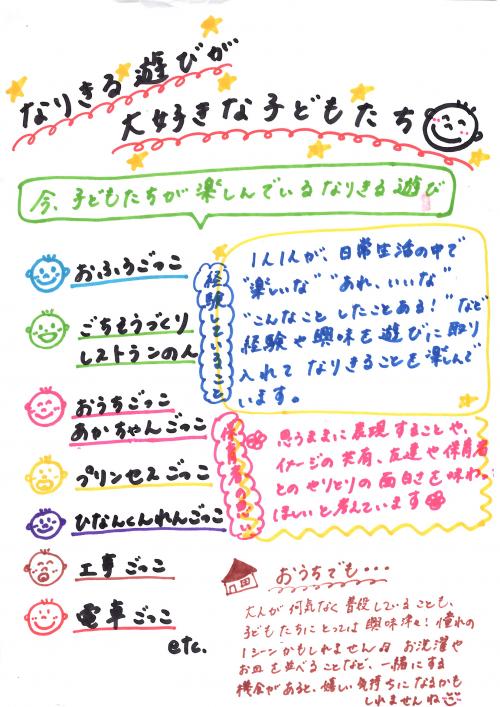 なりきる遊びが
大好きな子どもたち
今、子どもたちが楽しんでいるなりきる遊び
おふろごっこ
ごちそうづくり
レストランのん
おうちごっこ
あかちゃんごっこ
プリンセスごっこ
ひなんくんれんごっこ
工事ごっこ
電車ごっこ
etc.
経験していること
1人1人が、日常生活の中で
"楽しいな" "あれ、いいな"
"こんなこと したことある!"など
経験や興味を遊びに取り
入れて なりきることを楽しんで
います。
保育者の思い
思うままに表現することや、
イメージの共有、友達や保育者
とのやりとりの面白さを味わっ
ほしいと考えています
おうちでも・・・
大人が何気なく普段していることも、
子どもたちにとっては興味津々!憧れの
1シーンかもしれません♫ お洗濯や
お皿を並べることなど、一緒にする
機会があると、嬉しい気持ちになるかも
しれませんね